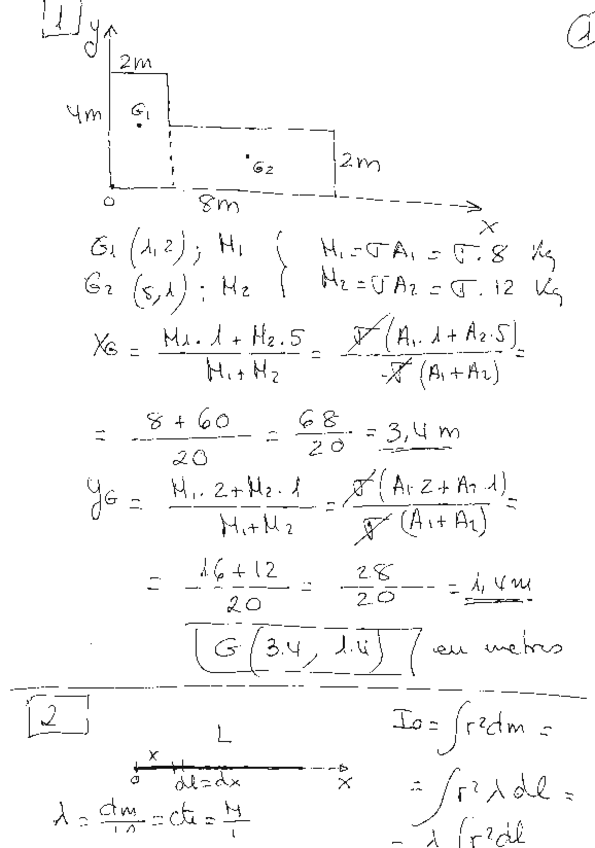 1
1
y
2m
4m
G1
G2
2m
0
8m
x
G1 (1,2) ; M1 { M1 = σA1 = σ·8 Kg
G2 (5,1) ; M2 { M2 = σA2 = σ·12 Kg
XG = (M1·1 + M2·5)/(M1+M2) = σ(A1·1 + A2·5)/σ(A1+A2) =
= (8+60)/20 = 68/20 = 3,4 m
yG = (M1·2 + M2·1)/(M1+M2) = σ(A1·2 + A2·1)/σ(A1+A2) =
= (16+12)/20 = 28/20 = 1,4 m
G (3.4, 1.4) en metros
2
L
x
0
dl=dx
x
λ = dm/dl = cte = M/L
I0 = ∫r²dm =
= ∫r²λdl =
= λ∫r²dl